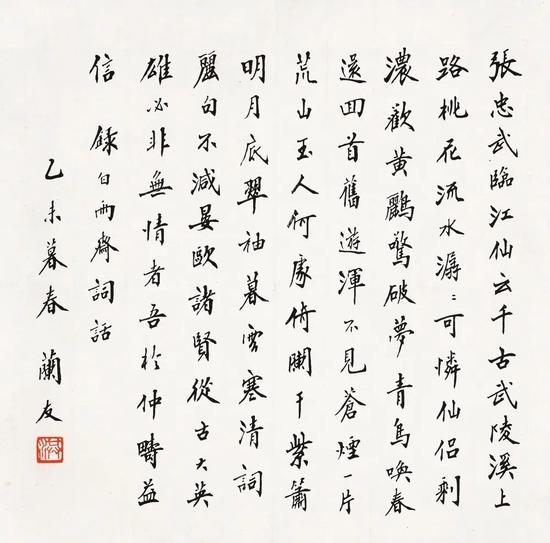 張忠武臨江仙云千古武陵溪上
路桃花流水潺〻可憐仙侶剩
濃歡黃鸝驚破夢青鳥喚春
還回首舊遊渾不見蒼煙一片
荒山玉人何處倚闌干紫簫
明月底翠袖暮雲寒清詞
麗句不減晏歐諸賢從古大英
雄必非無情者吾於仲疇益
信 錄白雨齋詞話
乙未暮春 蘭友